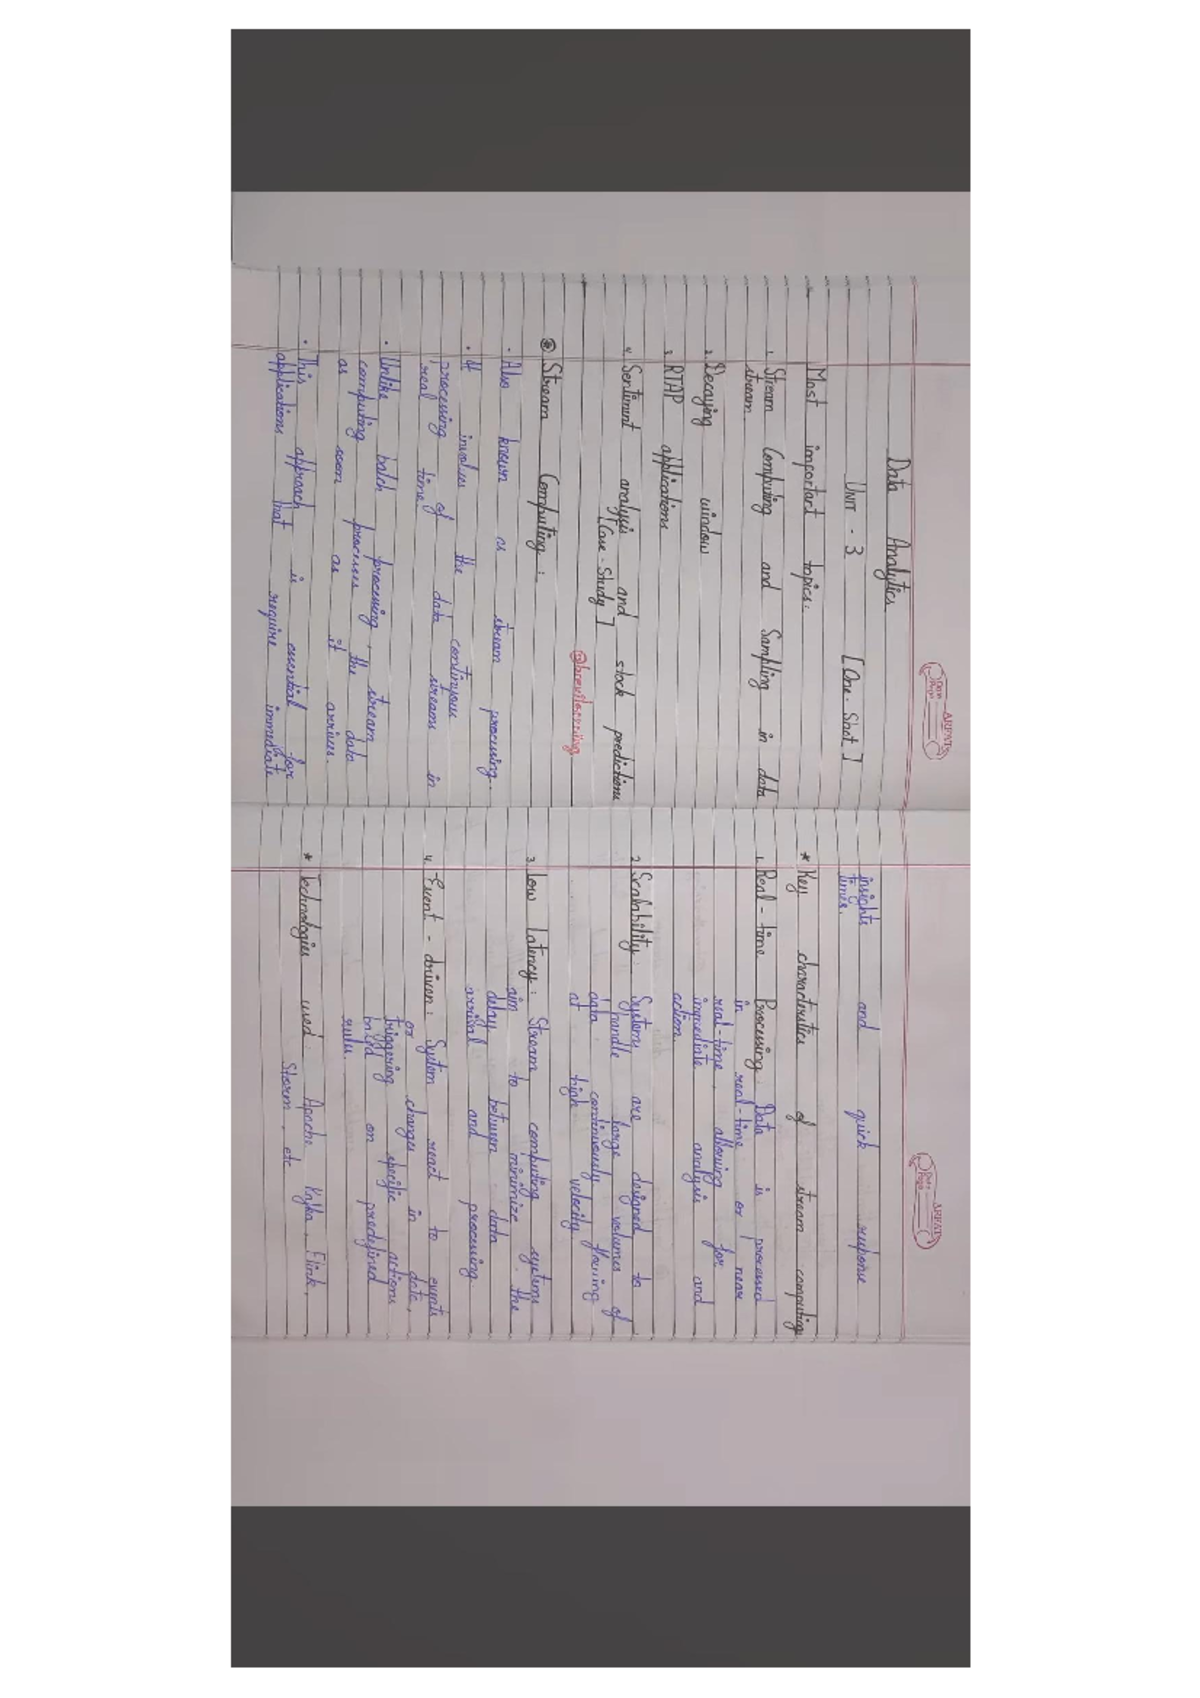 ARPAT
Date
Page
Data Analytics
UNIT - 3 [One - Shot]
Most important topics:
1. Stream Computing and Sampling in data
stream
2. Decaying window
3. RTAP applications
4. Sentiment analysis and stock predictions
[Case - Study]
@brevilearning
* Stream Computing :
• Also known as stream processing.
• It involves the continuous
processing of data streams in
real time.
• Unlike batch processing, the stream
computing processes the data
as soon as it arrives.
• This approach is essential for
applications that require immediate
ARPAT
Date
Page
insights and quick response
times.
* Key characteristics of stream computing
1. Real - time Processing : Data is processed
in real - time or near
real - time, allowing for
immediate analysis and
action.
2. Scalability : Systems are designed to
handle large volumes of
data continuously flowing
at high velocity.
3. Low Latency : Stream computing systems
aim to minimize the
delay between data
arrival and processing
4. Event - driven : System react to events
or changes in data,
triggering specific actions
based on predefined
rules.
* Technologies used : Apache Kafka, Flink,
Storm, etc